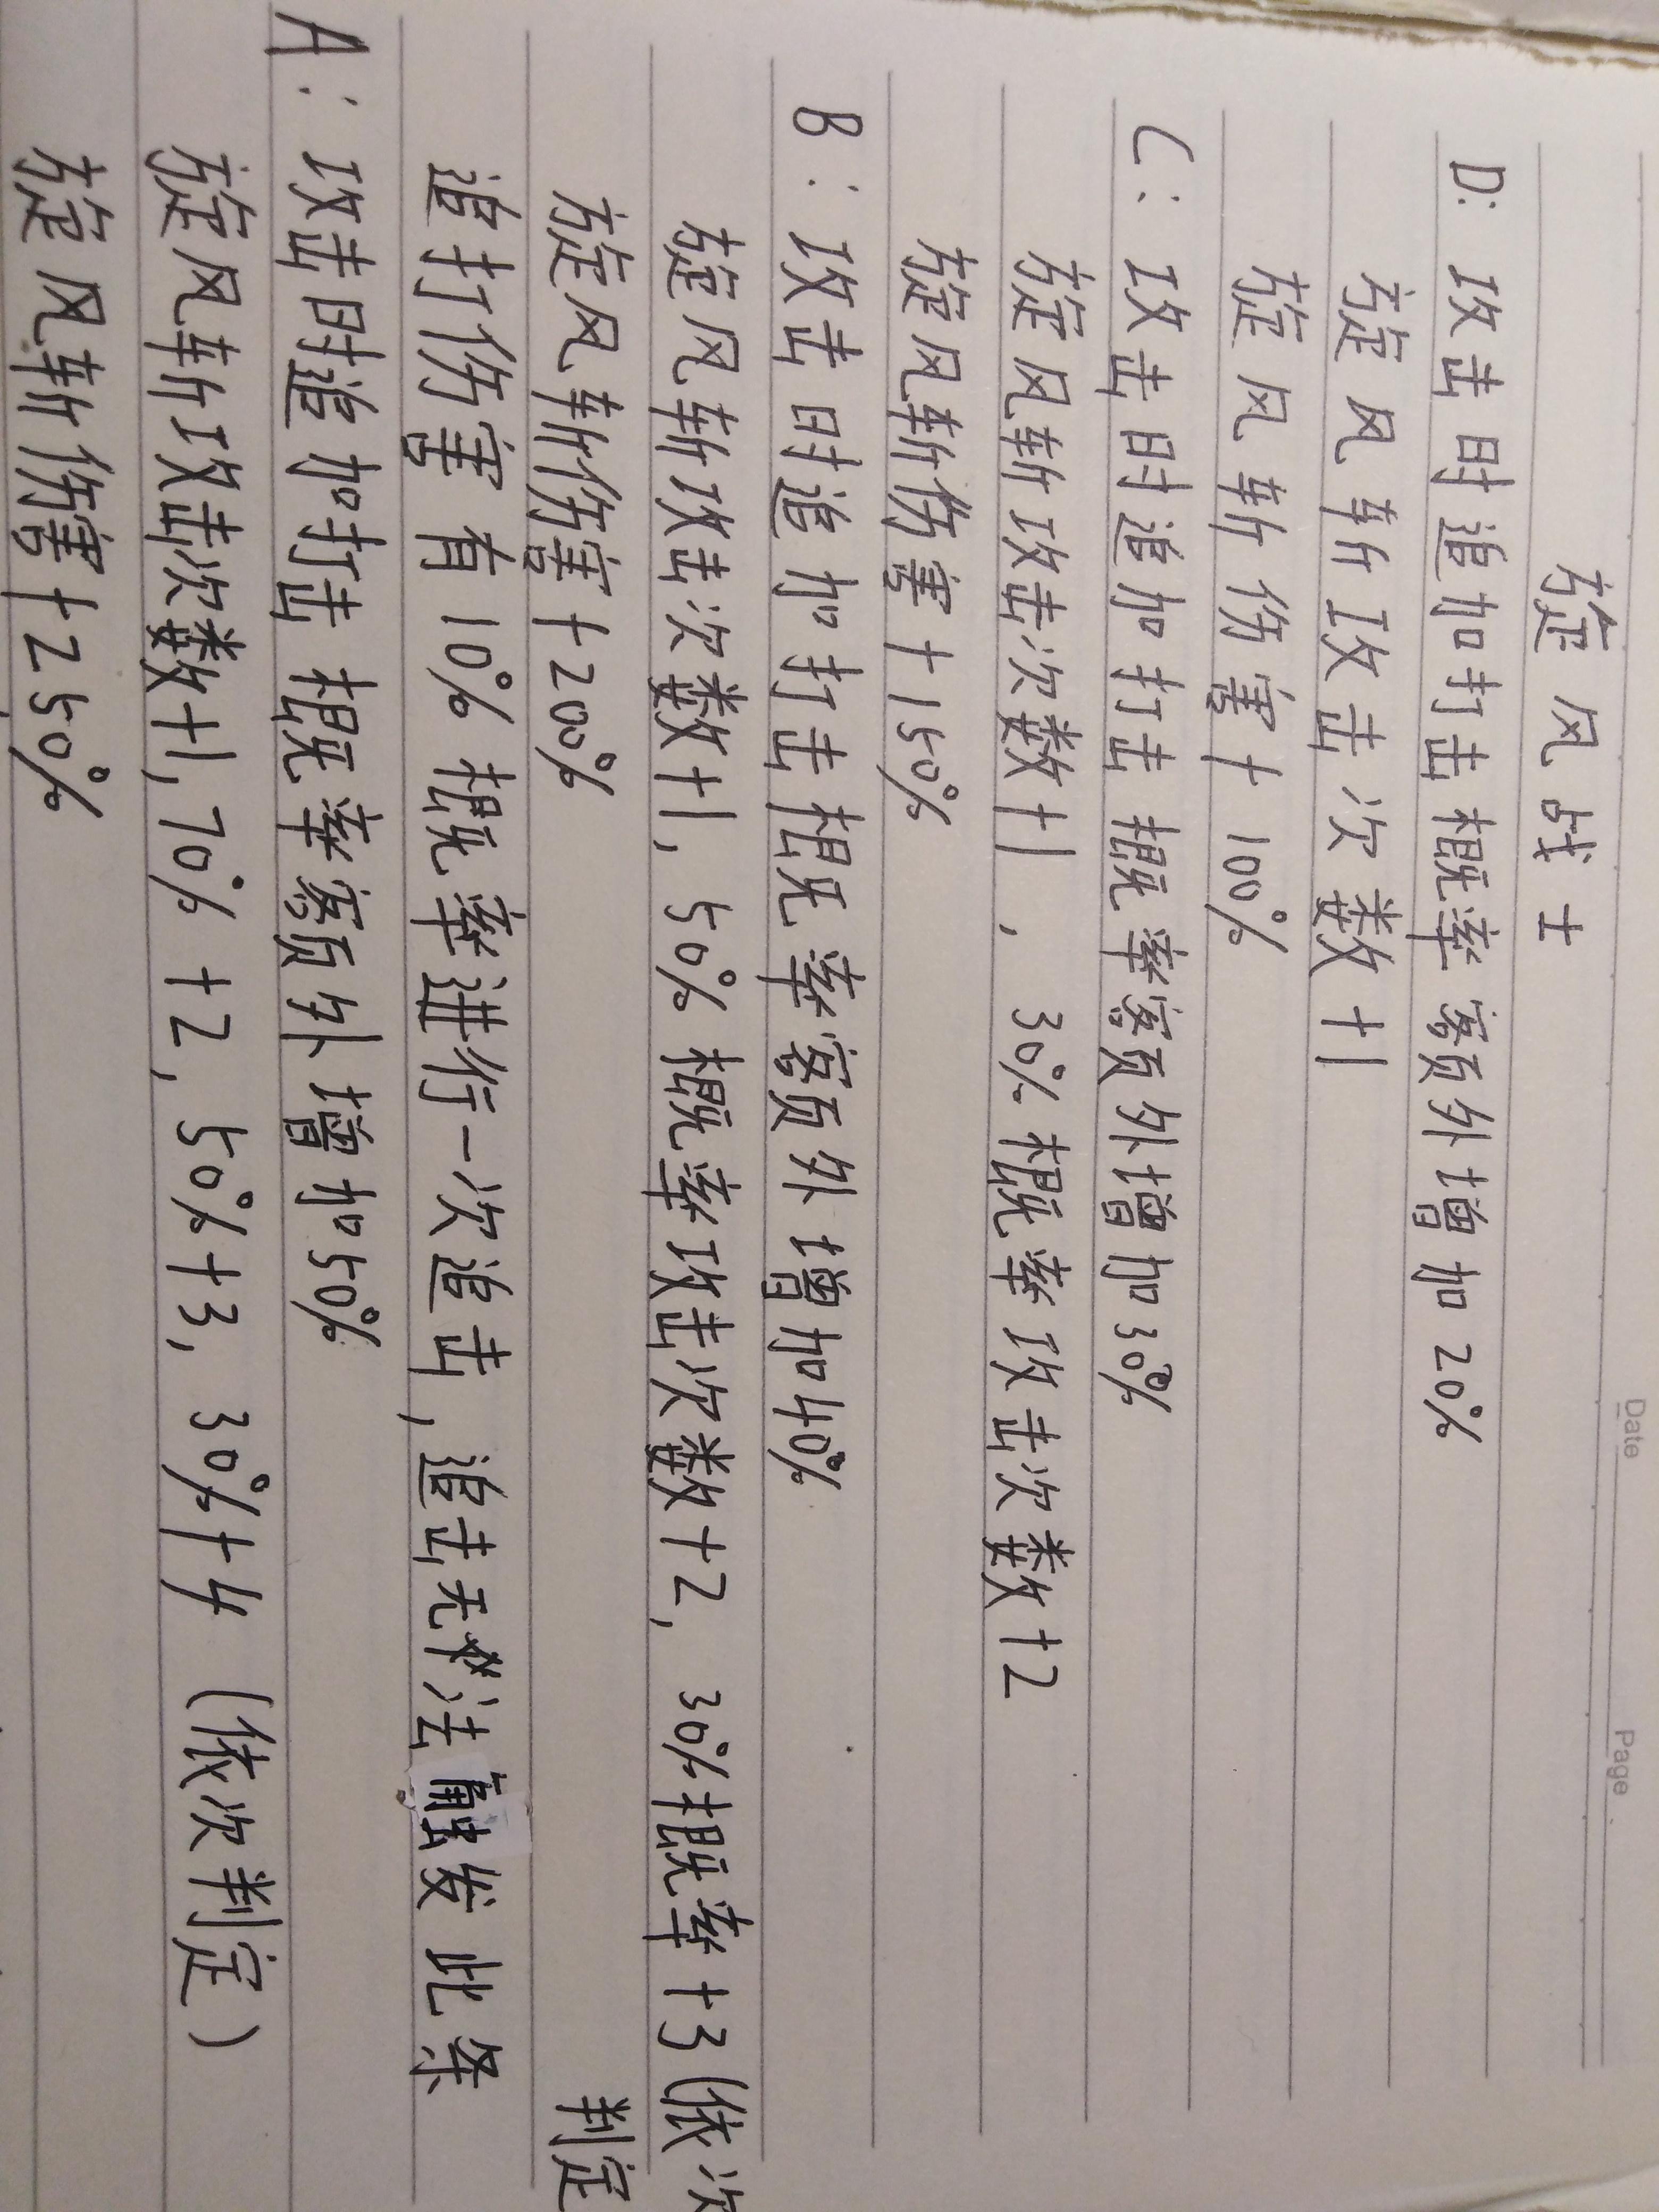 Date
Page
旋风战士
D: 攻击时追加打击概率额外增加20%
旋风斩攻击次数+1
旋风斩伤害+100%
C: 攻击时追加打击概率额外增加30%
旋风斩攻击次数+1, 30%概率攻击次数+2
旋风斩伤害+150%
B: 攻击时追加打击概率额外增加40%
旋风斩攻击次数+1, 50%概率攻击次数+2, 30%概率+3(依次
判定
旋风斩伤害+200%
追打伤害有10%概率进行一次追击, 追击无法触发此条
A: 攻击时追加打击概率额外增加50%
旋风斩攻击次数+1, 70%+2, 50%+3, 30%+4 (依次判定)
旋风斩伤害+250%